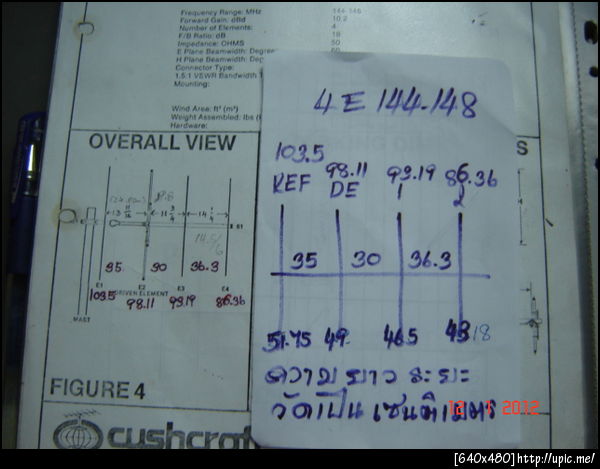 Frequency Range: MHz 144-148
Forward Gain: dBd 10.2
Number of Elements: 4
F/B Ratio: dB 18
Impedance: OHMS 50
E Plane Beamwidth: Degrees 60
H Plane Beamwidth: Deg
Connector Type:
1.5:1 VSWR Bandwidth
Mounting:
Wind Area: ft² (m²)
Weight Assembled: lbs
Hardware:
4 E 144-148
103.5 98.11 93.19 86.36
REF DE 1 2
35 30 36.3
51.75 49. 46.5 43.18
ความ ยาว ระยะ
วัดเป็น เซนติเมตร
12 1 2012
OVERALL VIEW
S
13 11/16 11 3/4 14 1/4
35 30 36.3
E1 E2 E3 E4
DRIVEN ELEMENT
103.5 98.11 93.19 86.36
MAST
FIGURE 4
cushcraf
[640x480]http://upic.me/